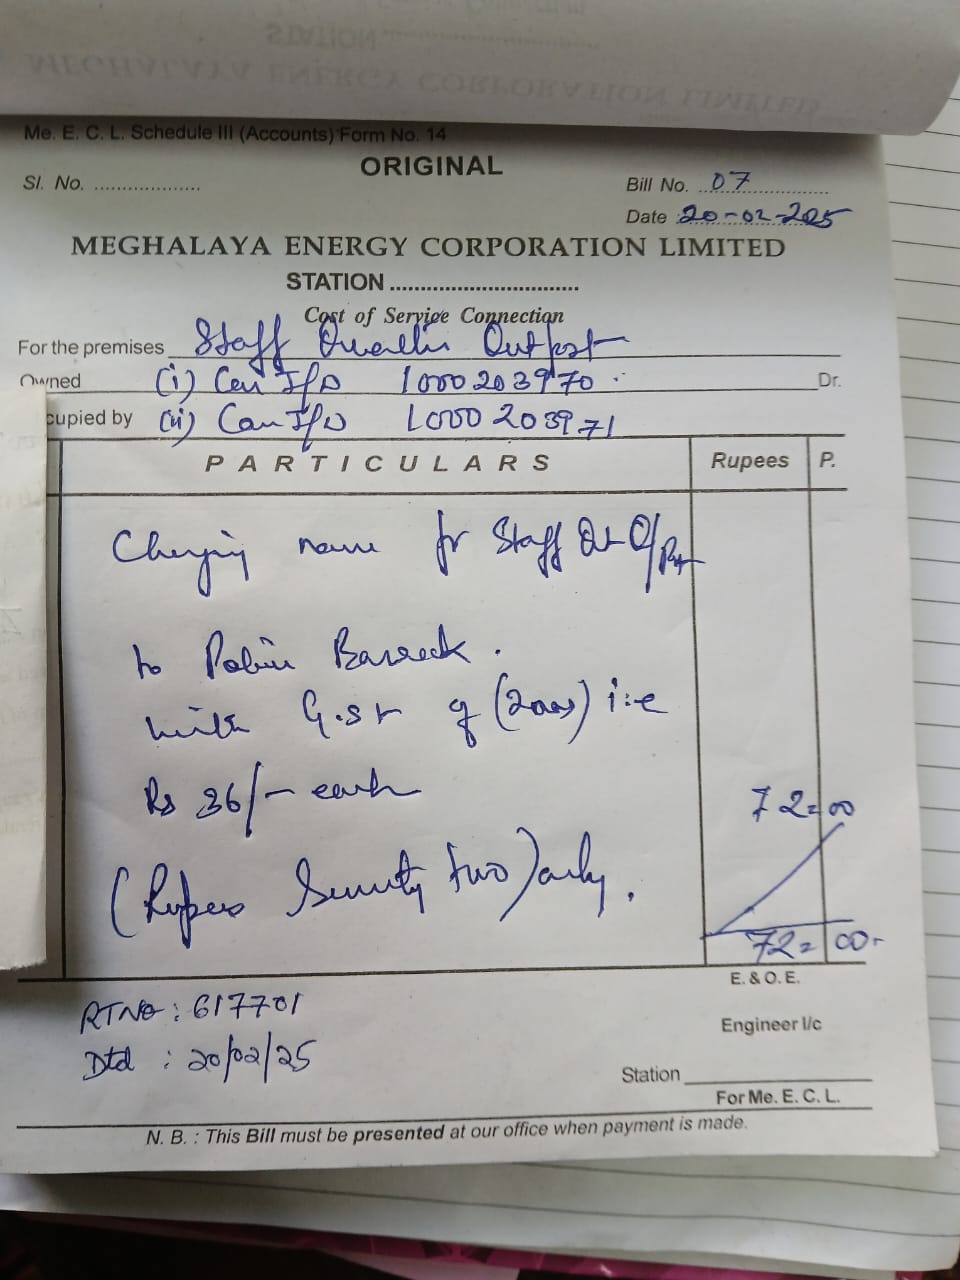 Me. E. C. L. Schedule III (Accounts) Form No. 14
ORIGINAL
Sl. No. ....................
Bill No. 07
Date 20-02-2025
MEGHALAYA ENERGY CORPORATION LIMITED
STATION ................................
Cost of Service Connection
For the premises Staff Outpost
Owned (i) 1000203970 Dr.
cupied by (ii) 1000203971
PARTICULARS Rupees P.
Changing name for Staff Qt O/Pst
to Police Barrack.
with G.S.T of (2nos) i.e
Rs 36/- each 72=00
(Rupees Seventy two) only.
72=00
E. & O. E.
RTNO: 617701
Engineer I/c
Dtd : 20/02/25
Station
For Me. E. C. L.
N. B. : This Bill must be presented at our office when payment is made.